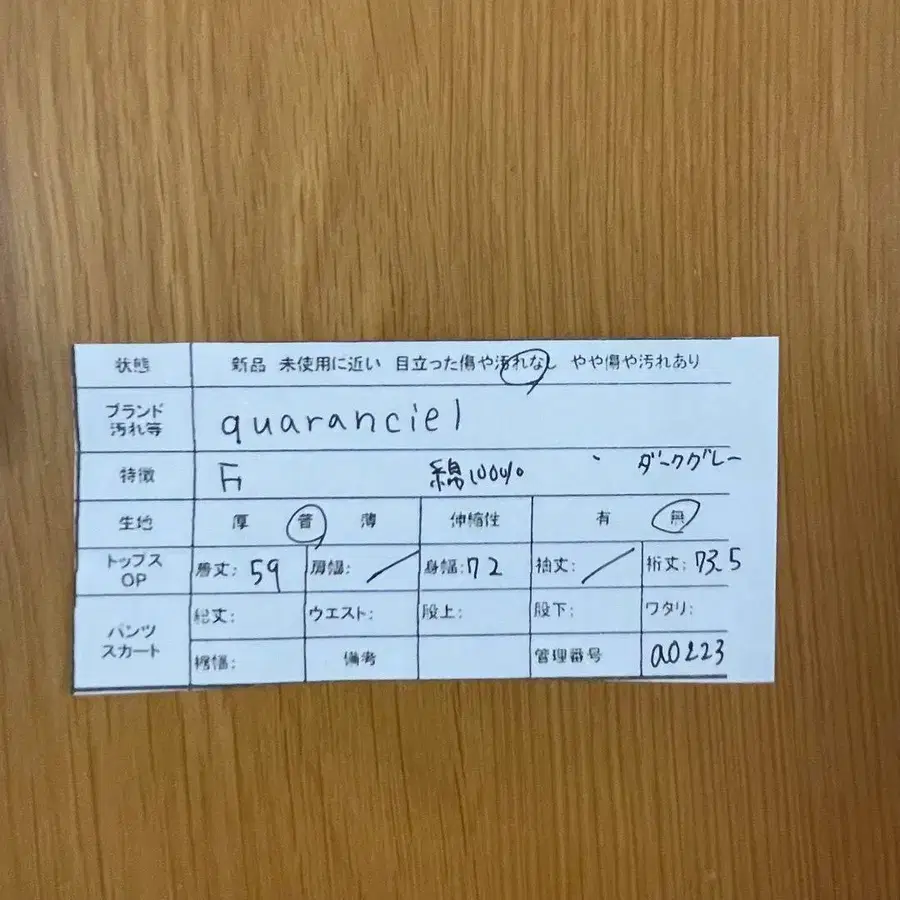 状態 新品 未使用に近い 目立った傷や汚れなし やや傷や汚れあり
ブランド
汚れ等
quaranciel
特徴 F 綿100% ダークグレー
生地 厚 普 薄 伸縮性 有 無
トップス
OP
着丈: 59 肩幅: 身幅: 72 袖丈: 裄丈: 73.5
パンツ
スカート
総丈: ウエスト: 股上: 股下: ワタリ:
裾幅: 備考 管理番号 a0223